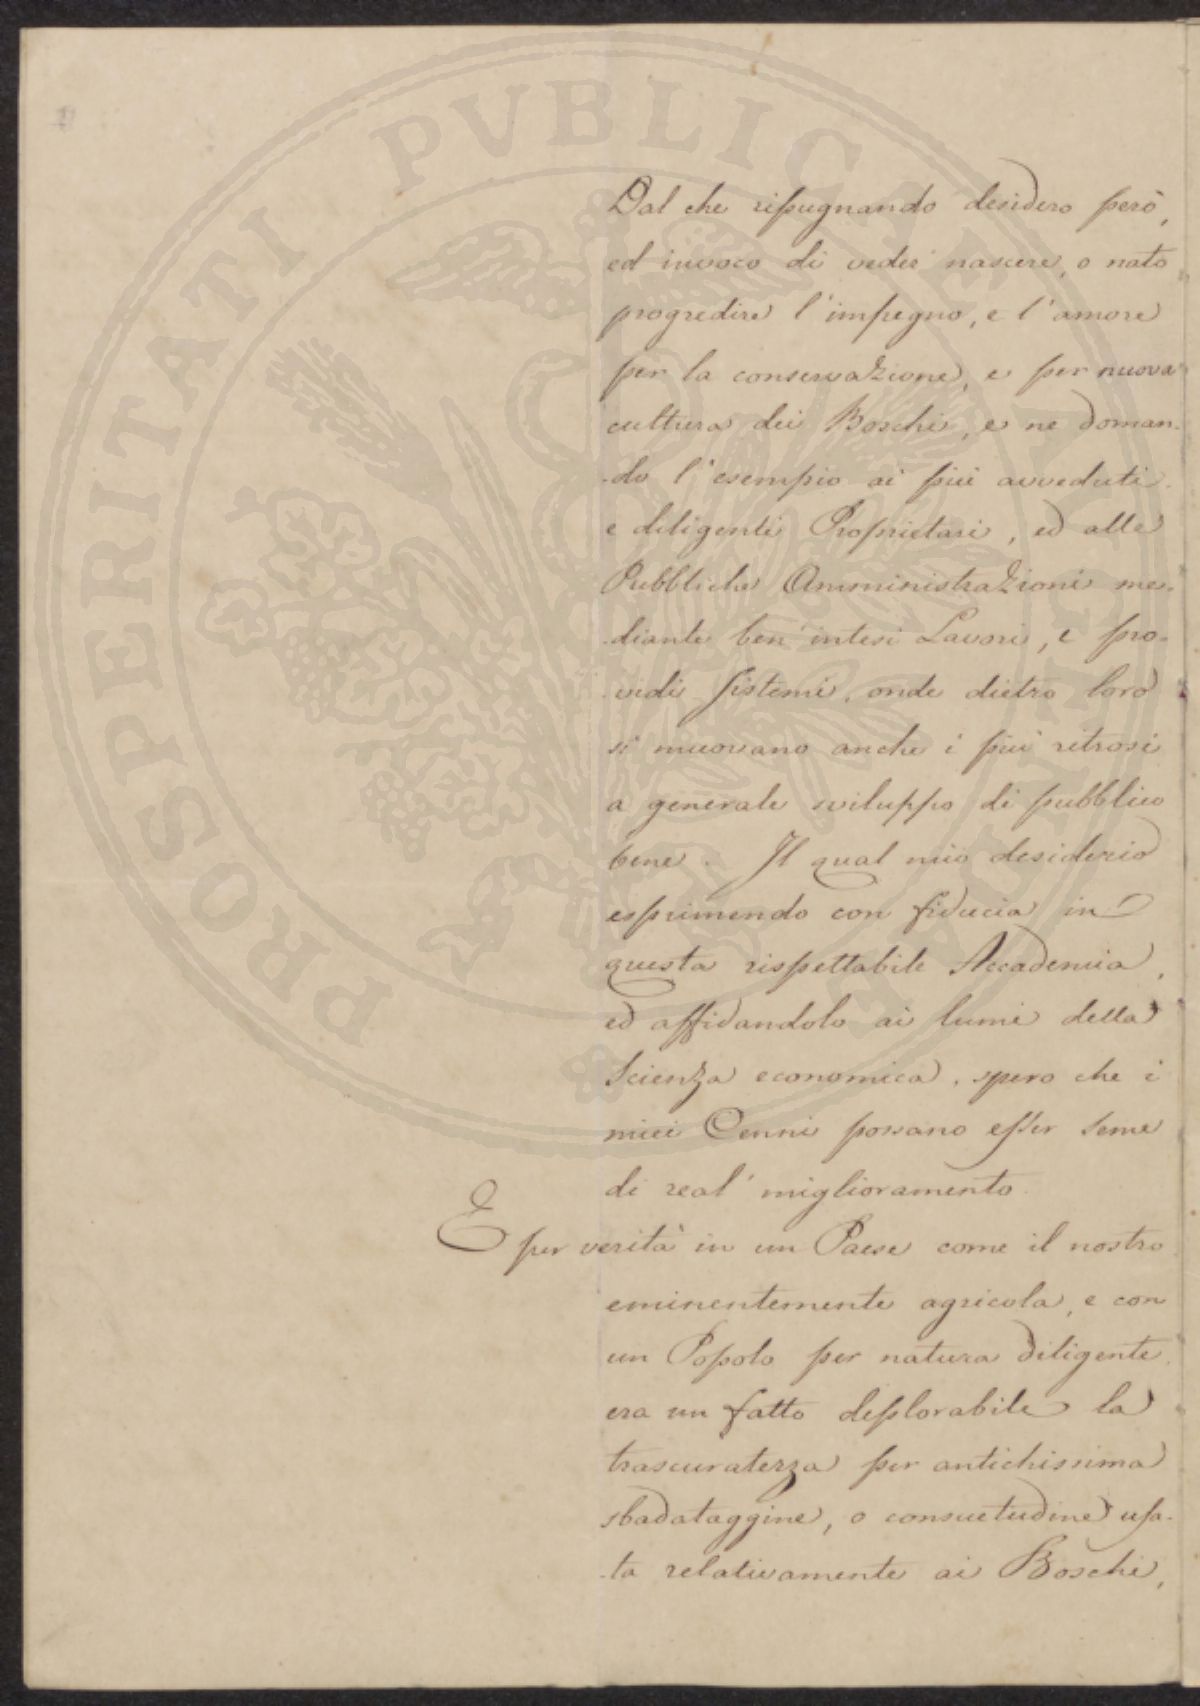 PROSPERITATI PVBLICAE AVGENDAE
Dal che ripugnando desidero però,
ed invoco di veder nascere, o nato
progredire l'impegno, e l'amore
per la conservazione, e per nuova
cultura dei Boschi, e ne doman-
-do l'esempio ai più avveduti
e diligenti Proprietari, ed alle
Pubbliche Amministrazioni me-
-diante ben'intesi Lavori, e pro-
-vidi sistemi, onde dietro loro
si muovano anche i più ritrosi
a generale sviluppo di pubblico
bene. Il qual mio desiderio
esprimendo con fiducia in
questa rispettabile Accademia,
ed affidandolo ai lumi della
Scienza economica, spero che i
miei Cenni possano esser seme
di real' miglioramento.
E per verità in un Paese come il nostro
eminentemente agricola, e con
un Popolo per natura diligente
era un fatto deplorabile la
trascuratezza per antichissima
sbadataggine, o consuetudine usa-
-ta relativamente ai Boschi,